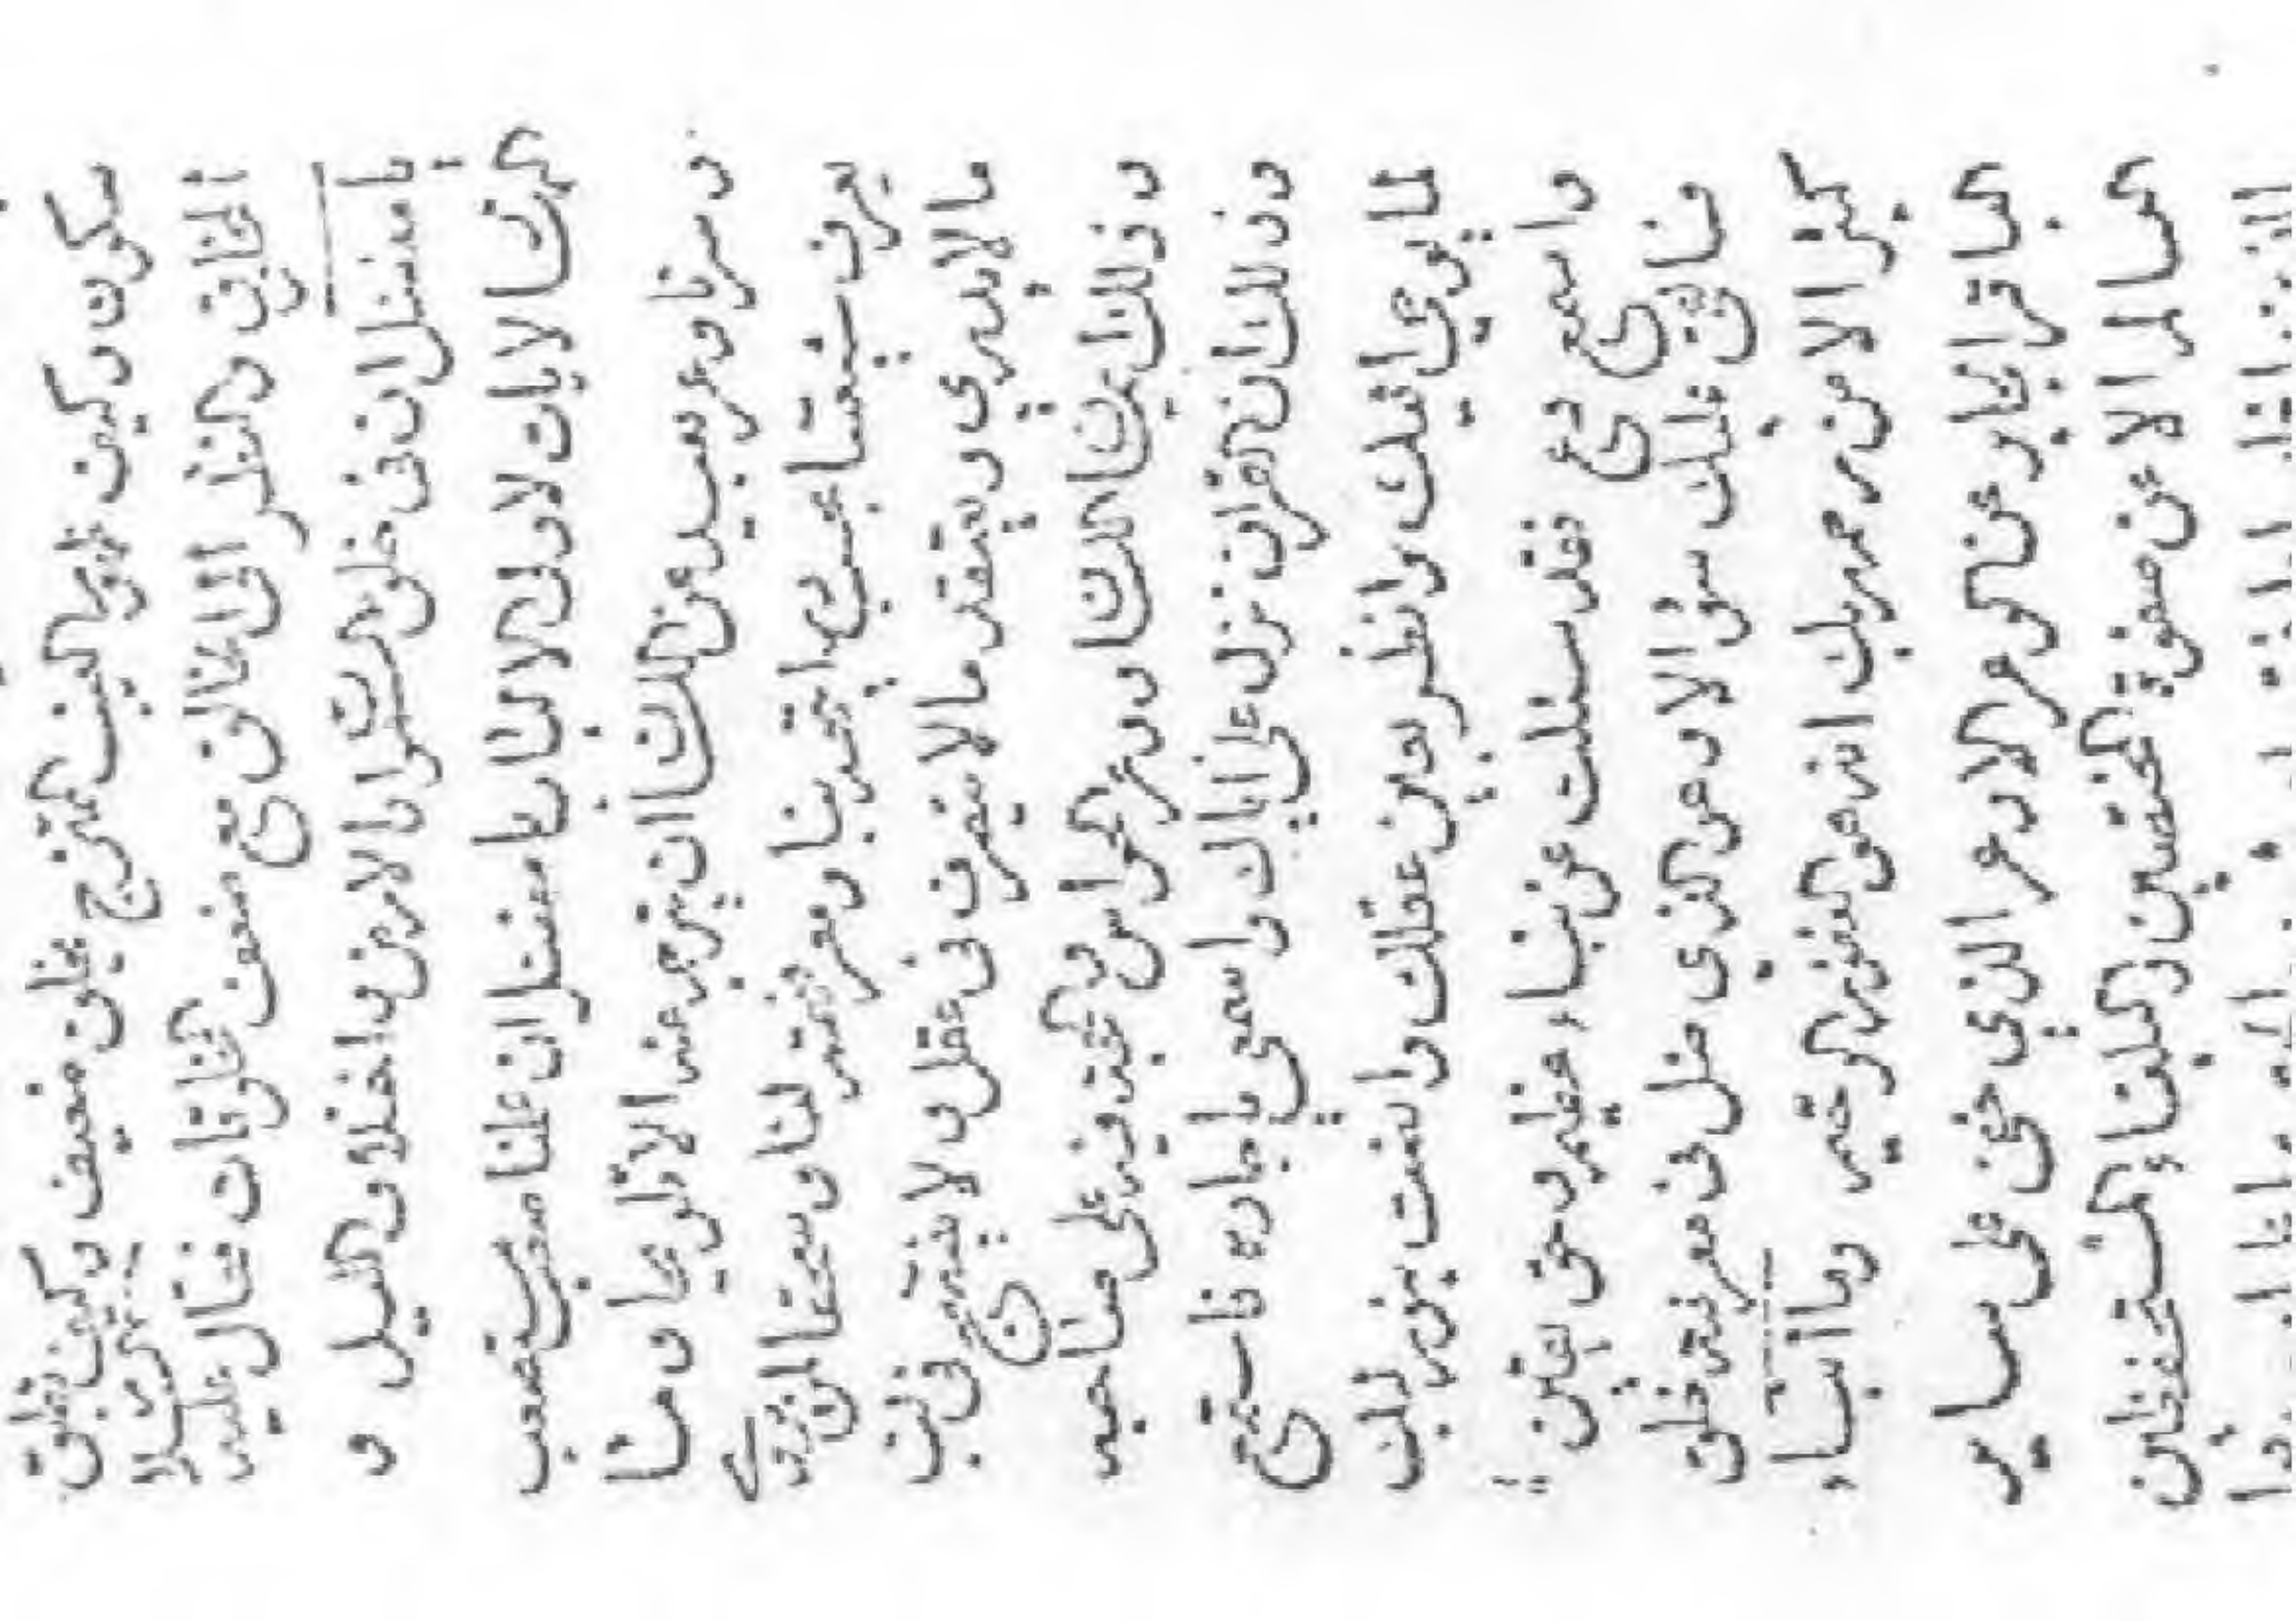 سكون وكيف ظهر اللطيف الممتزج بخلق ضعيف وكيف نطق
الخالق والنظر الى الخالق مع ضعف المخلوقات فقال عليه السلام
يا مفضل ان في خلق السموات والارض واختلاف الليل و
النهار لايات لاولى الالباب يا مفضل ان علمنا صعب مستصعب
و سرنا وعر بعيد عن اللسان ان يترجم عنه الا تلويحا وما
يعرف شيعتنا بحسب بنا ومعرفتهم لنا وسحقا لمن يروي
ما لا يدري ويعتقد ما لا يتصرف في عقل ولا يتضح في لب
وذلك ايمان اللسان ووعر الحواس و فيه على صاحبه
وذلك ان القران نزل على اياك واسمعي يا جاره فاستمع
لما يوحى اليك وانظر بعين عقلك وانصت بنور لبك
واسمع وع فقد سئلت عن نباء عظيم وحق يقين
عليك سؤالا وعن الذي ضل في معرفته خلق
كثيرا الا من رحم ربك انه هو الغفور الرحيم وما انباء
عن الوعر الاوعر الذي خفي على ساير
العالم الا عن صفوة المختصين والبلغاء المستحفظين